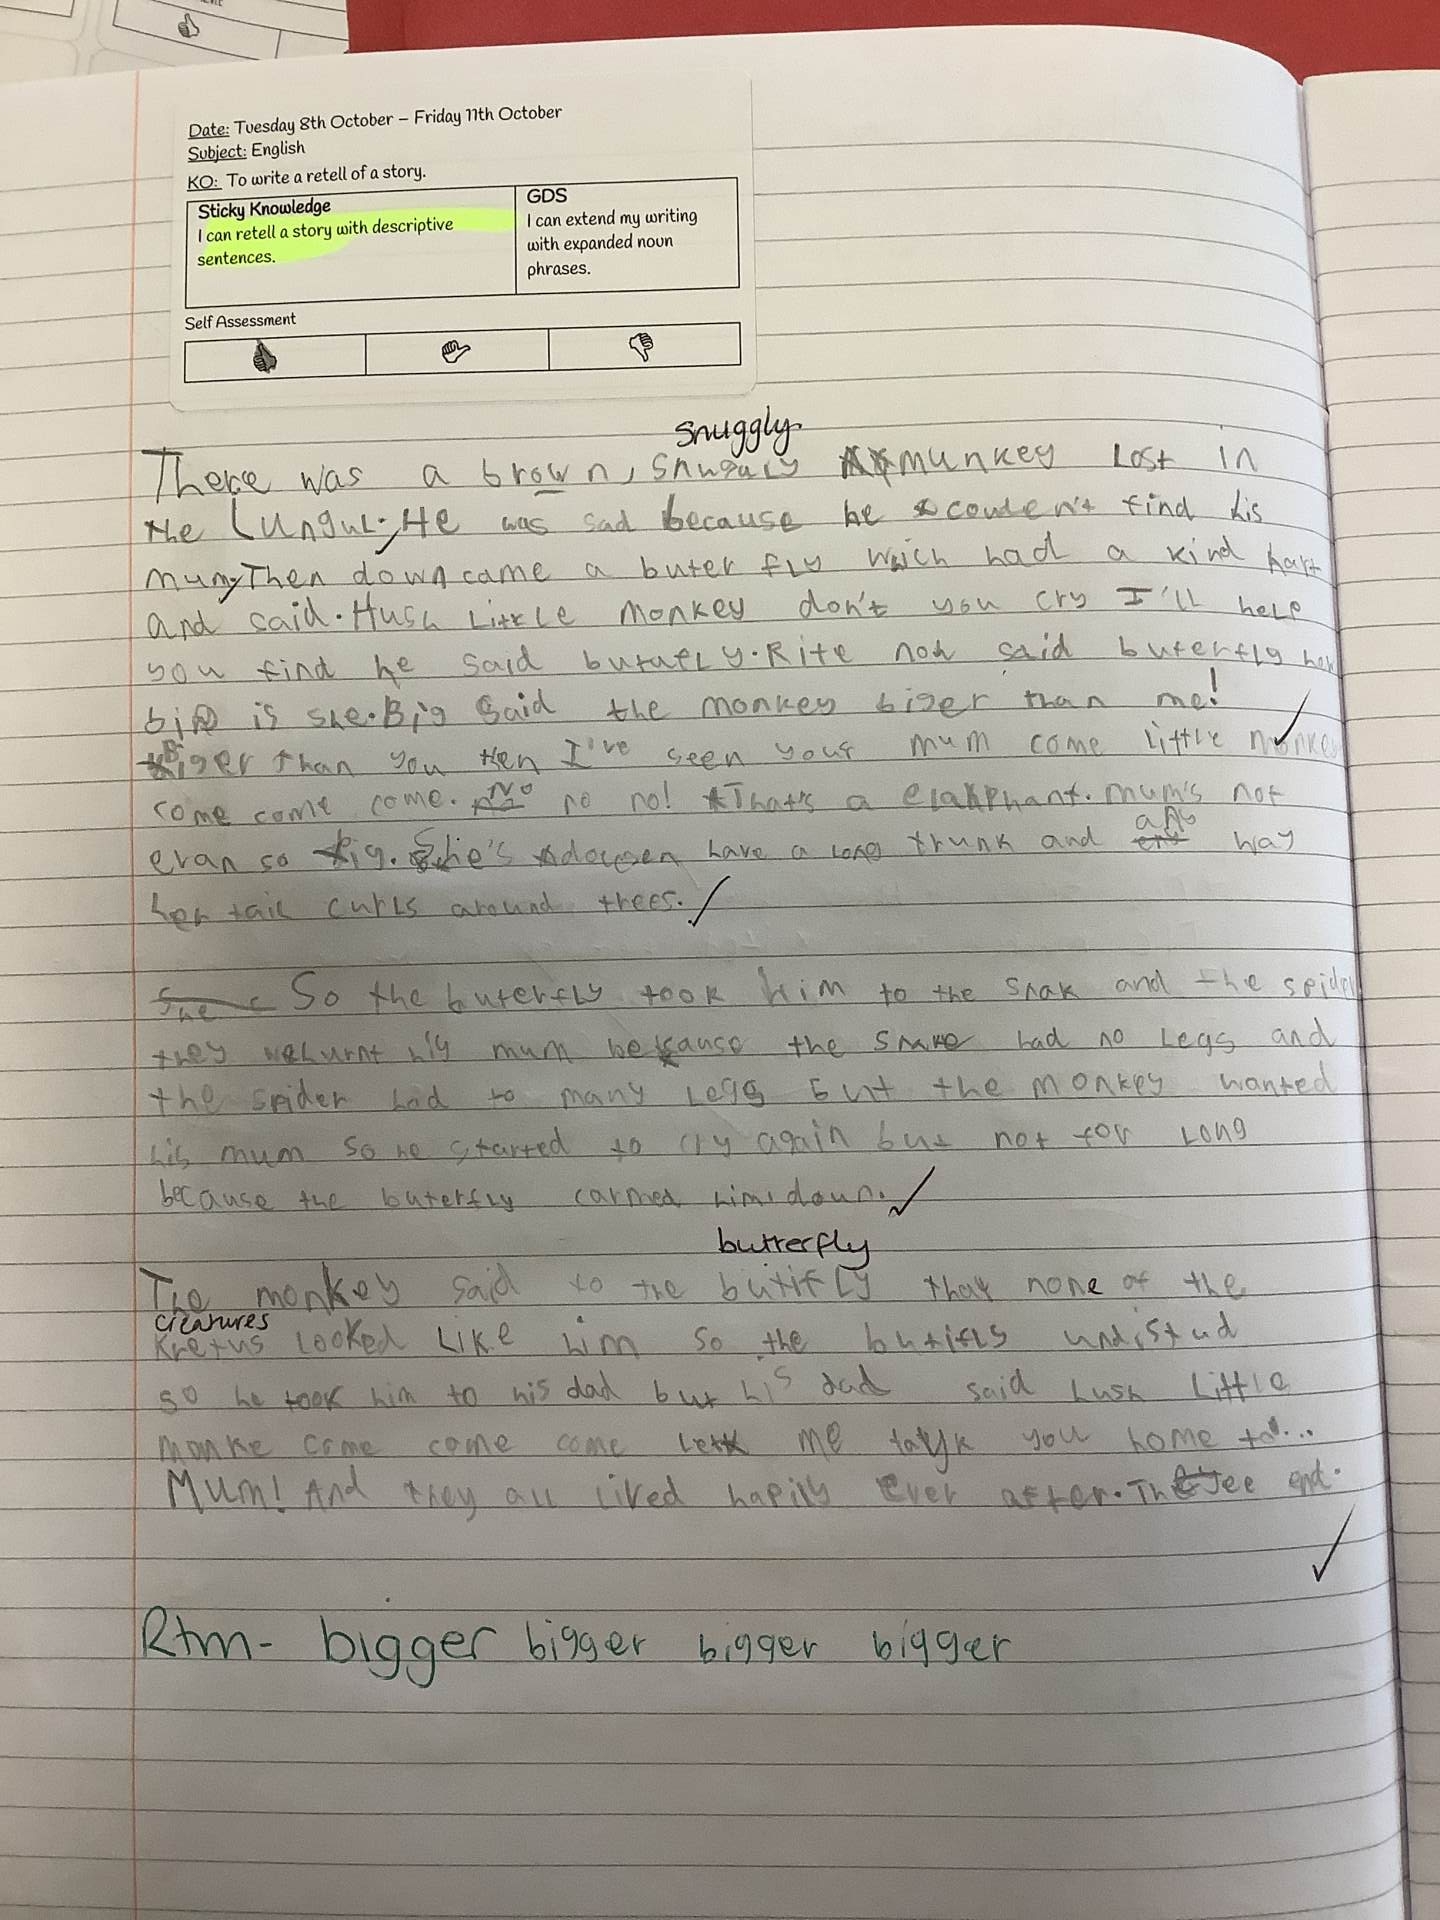 Date: Tuesday 8th October – Friday 11th October
Subject: English
KO: To write a retell of a story.
Sticky Knowledge
I can retell a story with descriptive
sentences.
GDS
I can extend my writing
with expanded noun
phrases.
Self Assessment
snuggly
There was a brown, snugaly munkey Lost in
the Lungul. He was sad because he couden't find his
mum, Then down came a buter fly which had a kind hart
and said. Hush Little monkey don't you cry I'll help
you find he said butafly. Rite noh said buterfly how
big is she. Big said the monkey biger than me!
Biger than you then I've seen your mum come little monkey
come come come. No no no! That's a elakphant. Mum's not
evan so big. She's dousen have a long trunk and any way
her tail curls around trees.
She So the buterfly took him to the snak and the spider
they wehurnt his mum because the snake had no Legs and
the spider had to many Legs but the monkey wanted
his mum so he started to cry again but not for Long
because the buterfly carmed him doun.
butterfly
The monkey said to the butifly that none of the
creatures
kretus Looked Like him so the butifly undistud
so he took him to his dad but his dad said hush Little
monke come come come let me tayk you home to...
Mum! And they all lived happily ever after. The end.
Rtm- bigger bigger bigger bigger